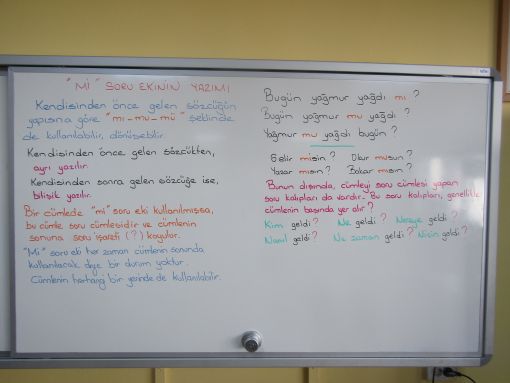 "Mİ" SORU EKİNİN YAZIMI
Kendisinden önce gelen sözcüğün
yapısına göre "mı-mu-mü" şeklinde
de kullanılabilir, dönüşebilir.
Kendisinden önce gelen sözcükten,
ayrı yazılır.
Kendisinden sonra gelen sözcüğe ise,
bitişik yazılır.
Bir cümlede "mi" soru eki kullanılmışsa,
bu cümle soru cümlesidir ve cümlenin
sonuna soru işareti (?) koyulur.
"Mi" soru eki her zaman cümlenin sonunda
kullanılacak diye bir durum yoktur.
Cümlenin herhangi bir yerinde de kullanılabilir.
Bugün yağmur yağdı mı ?
Bugün yağmur mu yağdı ?
Yağmur mu yağdı bugün ?
Gelir misin ? Okur musun ?
Yazar mısın ? Bakar mısın ?
Bunun dışında, cümleyi soru cümlesi yapan
soru kalıpları da vardır. Bu soru kalıpları, genellikle
cümlenin başında yer alır ?
Kim geldi ? Ne geldi ? Nereye geldi ?
Nasıl geldi ? Ne zaman geldi ? Niçin geldi ?